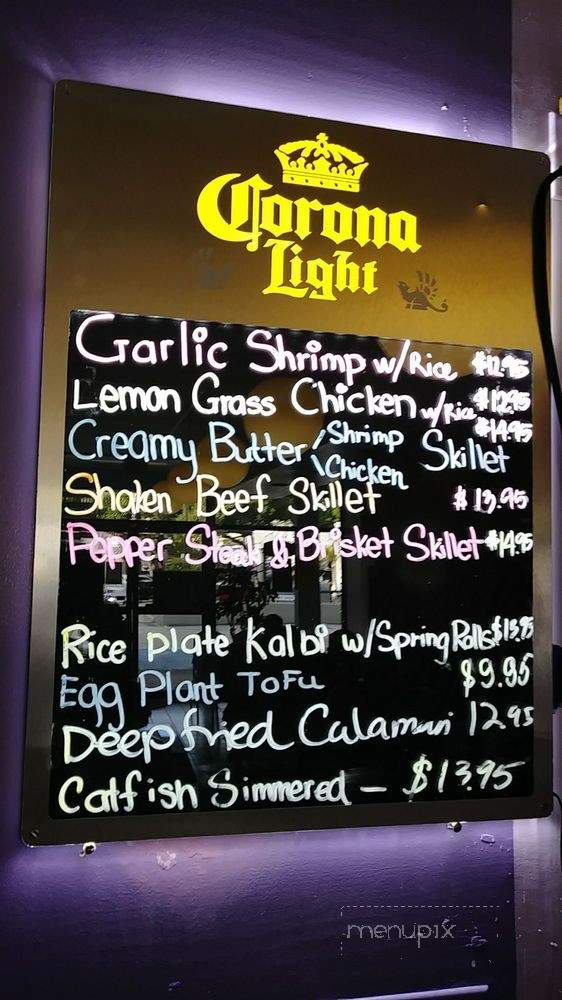 Corona
Light
Garlic Shrimp w/Rice $12.95
Lemon Grass Chicken w/Rice $12.95
Creamy Butter/Shrimp \Chicken Skillet $14.95
Shaken Beef Skillet $13.95
Pepper Steak & Brisket Skillet $14.95
Rice plate Kalbi w/Spring Rolls $13.95
Egg Plant ToFu $9.95
Deep fried Calamari 12.95
Catfish Simmered - $13.95
menupix